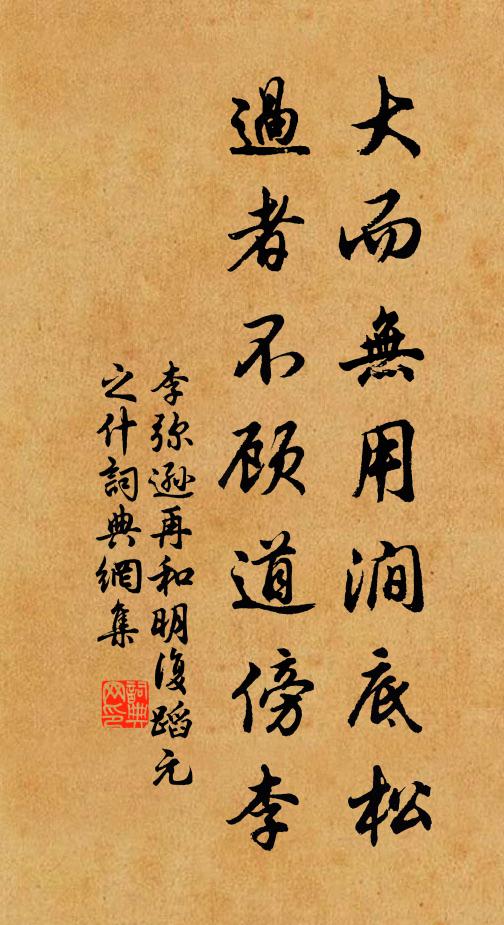 大而無用澗底松
過者不顾道傍李
李弥遜再和明復蹈元
之什詞典網集
詞典网印